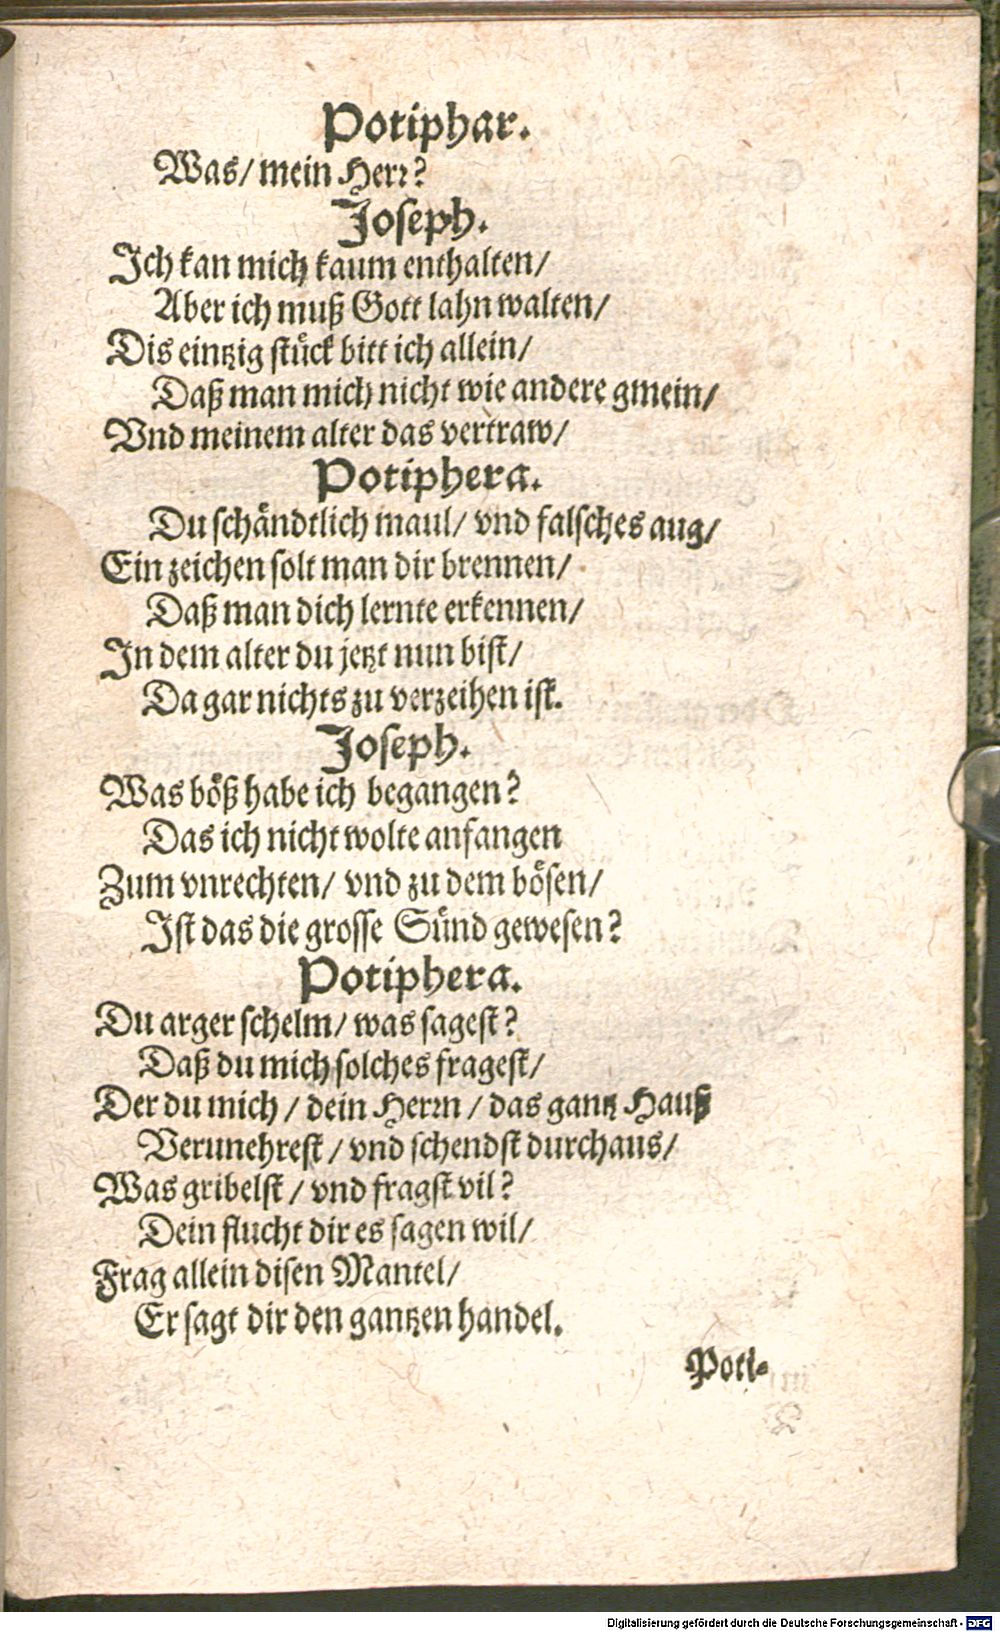 Potiphar.
Was/ mein Herr?
Joseph.
Ich kan mich kaum enthalten/
Aber ich muß Gott lahn walten/
Dis eintzig stück bitt ich allein/
Daß man mich nicht wie andere gmein/
Vnd meinem alter das vertraw/
Potiphera.
Du schändtlich maul/ vnd falsches aug/
Ein zeichen solt man dir brennen/
Daß man dich lernte erkennen/
In dem alter du jetzt nun bist/
Da gar nichts zu verzeihen ist.
Joseph.
Was böß habe ich begangen?
Das ich nicht wolte anfangen
Zum vnrechten/ vnd zu dem bösen/
Ist das die grosse Sünd gewesen?
Potiphera.
Du arger schelm/ was sagest?
Daß du mich solches fragest/
Der du mich / dein Herrn / das gantz Hauß
Verunehrest / vnd schendst durchaus/
Was gribelst / vnd fragst vil?
Dein flucht dir es sagen wil/
Frag allein disen Mantel/
Er sagt dir den gantzen handel.
Poti-
Digitalisierung gefördert durch die Deutsche Forschungsgemeinschaft - DFG